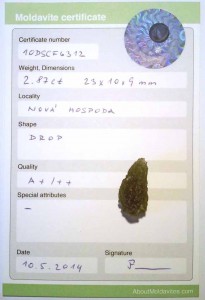 Moldavite certificate
Certificate number
10DSCF6312
Weight, Dimensions
2.87ct 23x10x9mm
Locality
NOVÁ HOSPODA
Shape
DROP
Quality
A+/++
Special attributes
–
Date
Signature
10.5.2014
AboutMoldavites.com